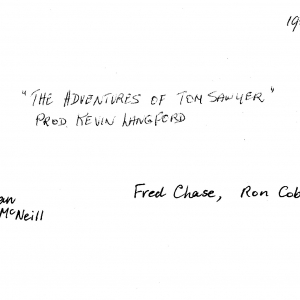 19
"THE ADVENTURES OF TOM SAWYER"
PROD. KEVIN LANGFORD
Fred Chase, Ron Cob
an
McNeill